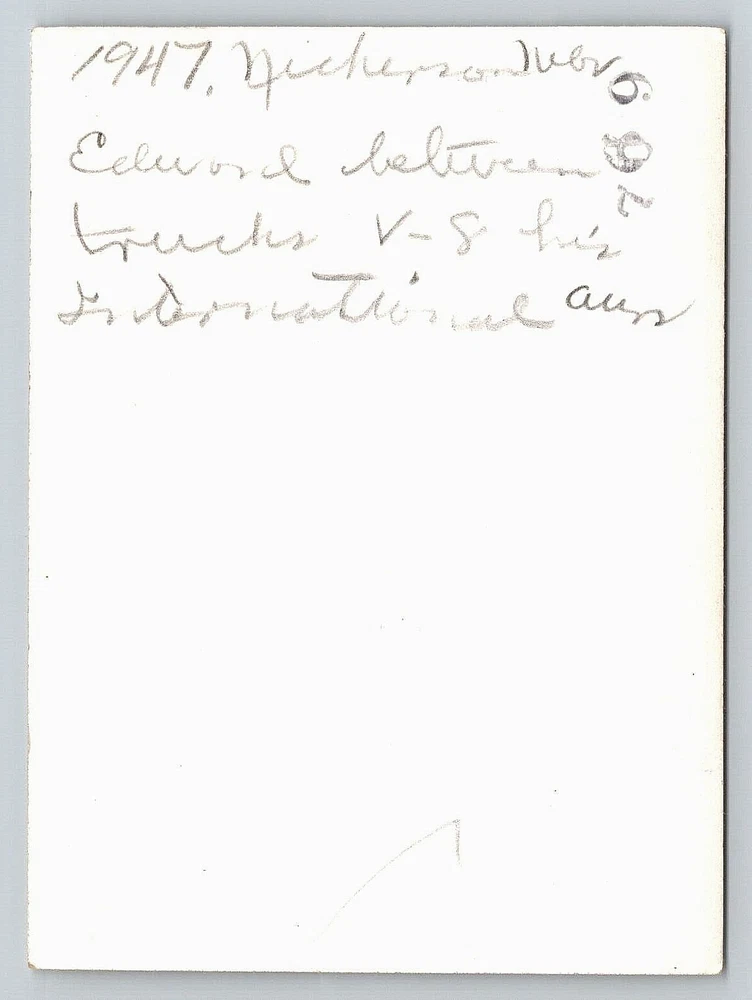 1947. Nickerson Nebr
Edward between
trucks V-8 his
International ours
7896